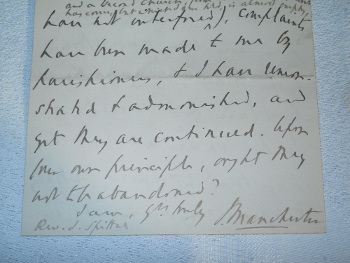 have not interfered), complaints
have been made to me by
Parishioners, & I have remon-
strated & admonished, and
yet they are continued. Upon
own principle, ought they
not to be abandoned?
I am, Yrs truly
J. Manchester
Rev. J.